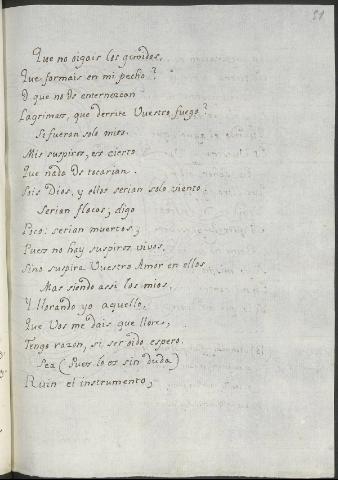 51
Que no oigais los gemidos,
Que formais en mi pecho?
O que no os enternezcan
Lagrimas, que derrite Vuestro fuego?
Si fueran solo mios
Mis suspiros, es cierto
Que nada os tocarian.
Sois Dios, y ellos serian solo viento.
Serian flacos, digo
Poco: serian muertos;
Pues no hay suspiros vivos,
Sino suspira Vuestro Amor en ellos
Mas siendo assi los mios,
Y llorando yo aquello,
Que Vos me dais que llore,
Tengo razon, si ser oido espero.
Sea (Pues lo es sin duda)
Ruin el instrumento,